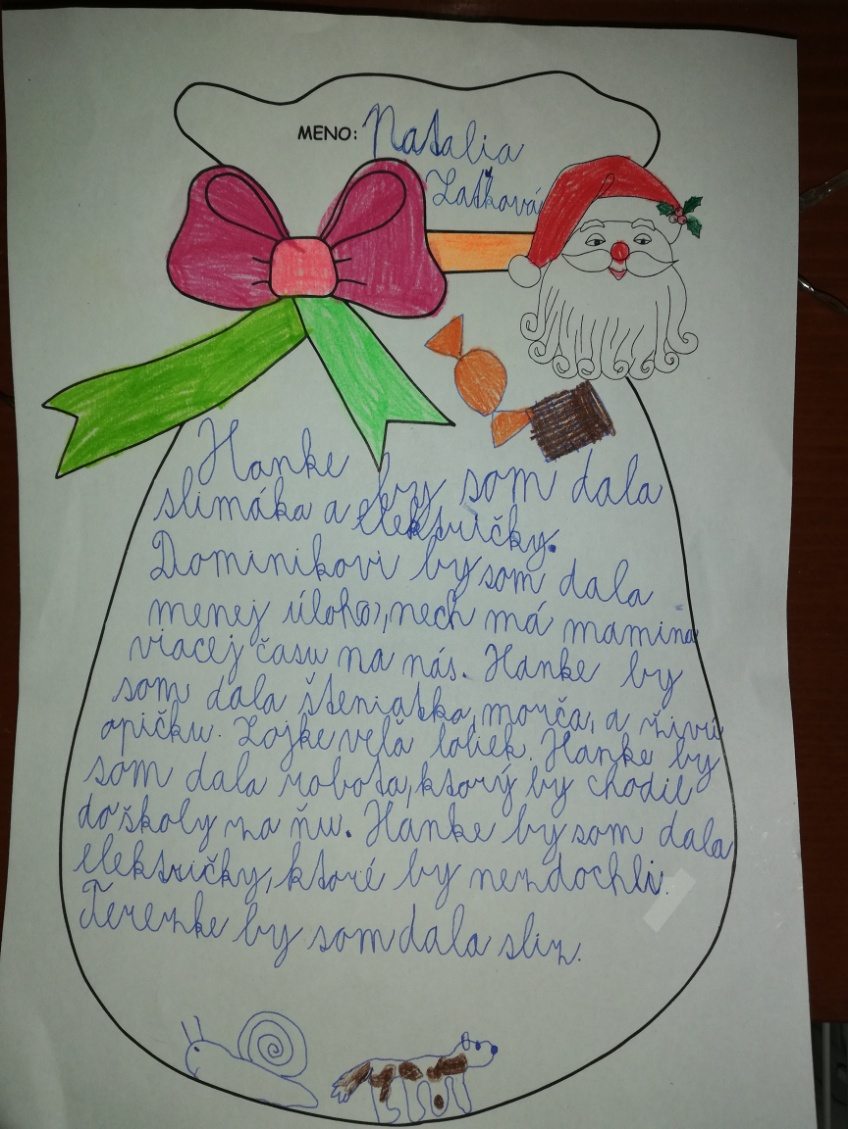 MENO: Natalia
Laťková
Hanke by som dala
slimáka a električky.
Dominikovi by som dala
menej úloh, nech má mamina
viacej času na nás. Hanke by
som dala šteniatko, morča, a živú
opičku. Zojke veľa loliek. Hanke by
som dala robota, ktorý by chodil
do školy za ňu. Hanke by som dala
električky, ktoré by nezdochli.
Terezke by som dala sliz.